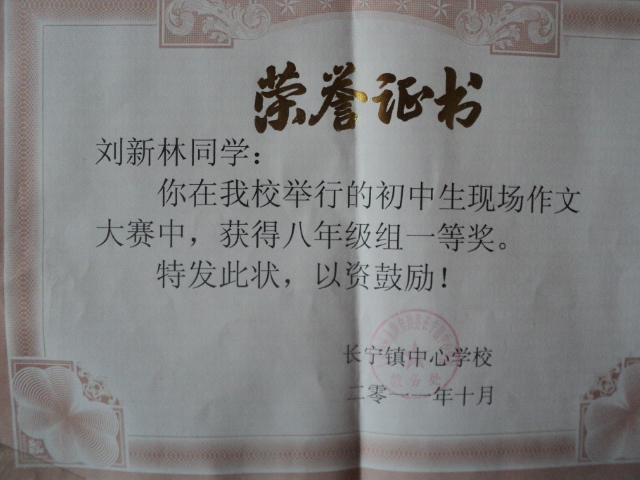 荣誉证书
刘新林同学：
你在我校举行的初中生现场作文
大赛中，获得八年级组一等奖。
特发此状，以资鼓励！
长宁镇中心学校
教务处
二零一一年十月